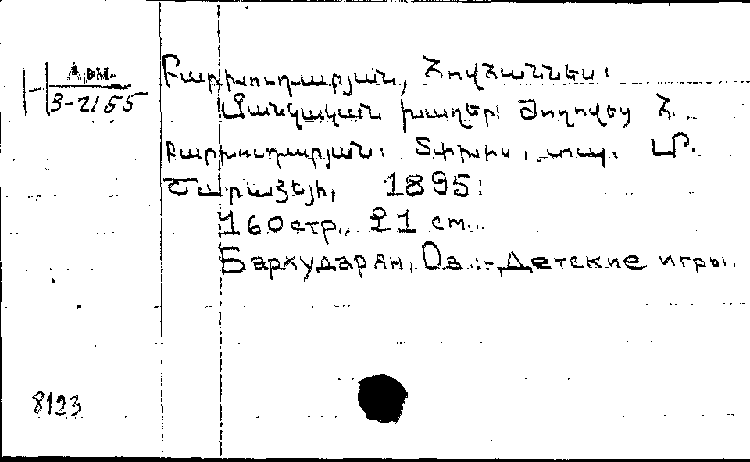 Арм.
3-2155
Բարխուդարյան, Հովհաննես։
Մանկական խաղեր։ Ժողովեց Հ.
Բարխուդարյան։ Տփխիս, տպ. Մ.
Շարաձեյի, 1895։
160 стр., 21 см.
Бархударян, Ов. :- Детские игры.
8123